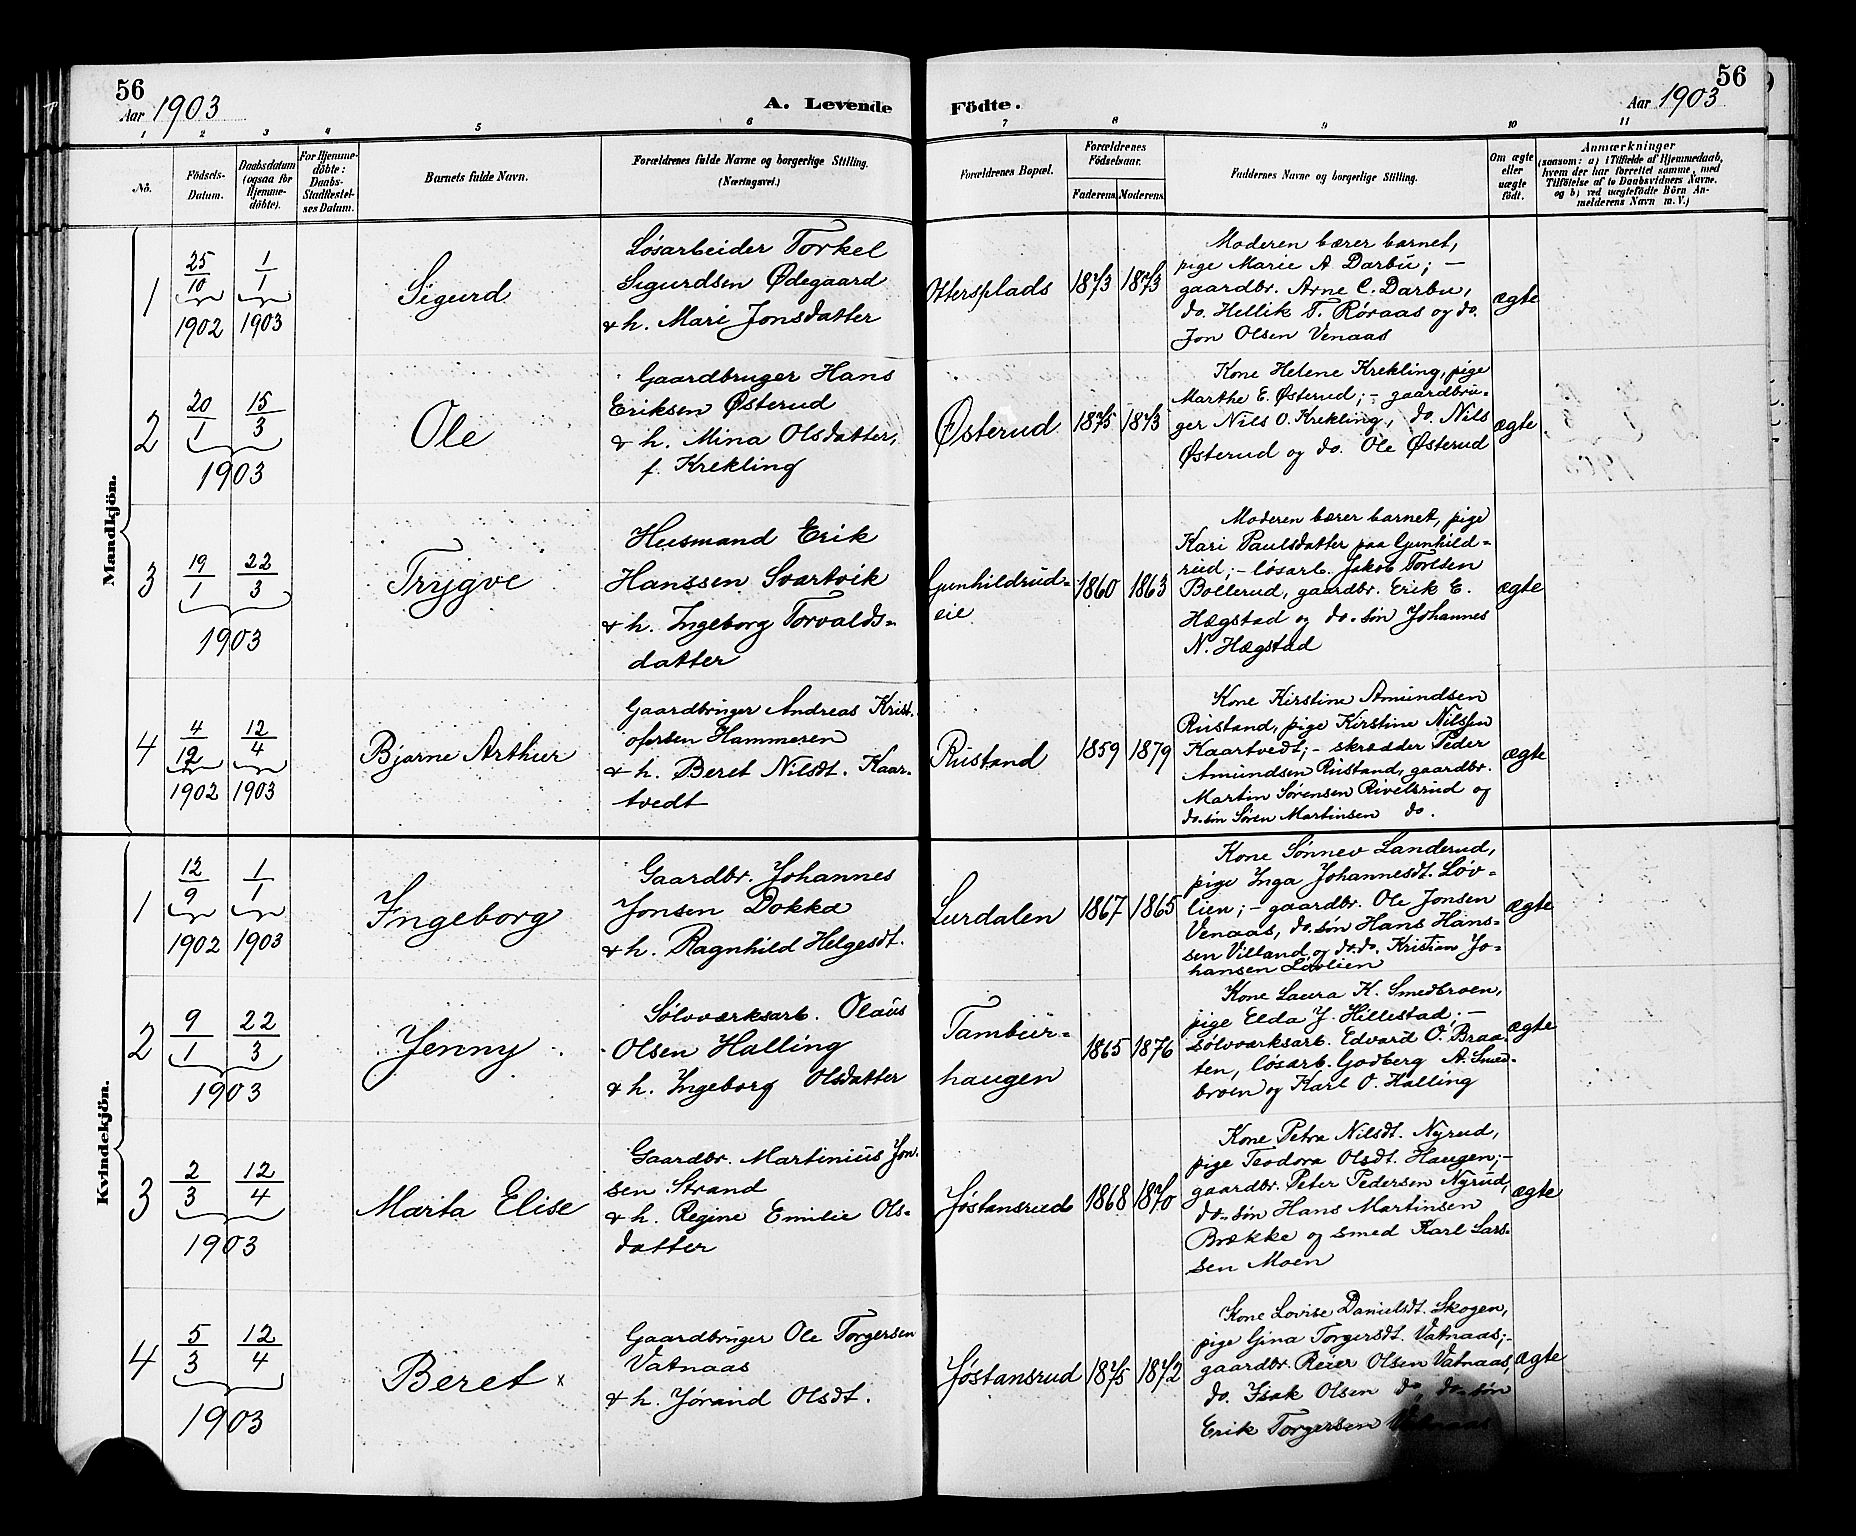 56
Aar 1903
A. Levende
Födte.
Aar 1903
56
1 2 3 4 5 6 7 8 9 10 11
No.
Födsels-
Datum.
Daabsdatum
(ogsaa for
Hjemme-
döbte).
For Hjemme-
döbte:
Daabs-
Stadfæstel-
ses Datum.
Barnets fulde Navn.
Forældrenes fulde Navne og borgerlige Stilling.
(Næringsvei.)
Forældrenes Bopæl.
Forældrenes
Födselsaar.
Faderens.
Moderens.
Faddernes Navne og borgerlige Stilling.
Om ægte
eller
uægte
født.
Anmærkninger
(saasom: a) i Tilfælde af Hjemmedaab,
hvem der har forrettet samme, med
Tilföielse af to Daabsvidners Navne,
og b) ved uægtefödte Börn An-
melderens Navn m. V.)
Mandkjön.
1
25/10
1902
1/1
1903
Sigurd
Løsarbeider Torkel
Sigurdsen Ødegaard
& h. Mari Jonsdatter
Ottersplads
1873
1873
Moderen bærer barnet,
pige Marie A Darbu; –
gaardbr. Arne C. Darbu,
do. Hellik T. Røraas og do.
Jon Olsen Venaas
ægte
2
20/1
15/3
1903
Ole
Gaardbruger Hans
Eriksen Østerud
& h. Mina Olsdatter,
f. Krekling
Østerud
1875
1873
Kone Helene Krekling, pige
Marthe E. Østerud; – gaardbru-
ger Nils O. Krekling, do. Nils
Østerud og do. Ole Østerud
ægte
3
19/1
22/3
1903
Trygve
Husmand Erik
Hanssen Svartvik
& h. Ingeborg Torvalds-
datter
Gunhildrud-
eie
1860
1863
Moderen bærer barnet, pige
Kari Paulsdatter paa Gunhild-
rud; – løsarb. Jakob Torlsen
Bollerud, gaardbr. Erik E.
Hægstad og do. søn Johannes
N. Hægstad
ægte
4
4/12
1902
12/4
1903
Bjarne Arthur
Gaardbruger Andreas Krist-
ofersen Hammeren
& h. Beret Nilsdt. Kaar-
tvedt
Rustand
1859
1879
Kone Kirstine Amundsen
Rustand, pige Kirstine Nilssen
Kaartvedt; – skrædder Peder
Amundsen Rustand, gaardbr.
Martin Sørensen Rivelsrud og
do. søn Søren Martinsen do.
ægte
Kvindekjön.
1
12/9
1902
1/1
1903
Ingeborg
Gaardbr. Johannes
Jonsen Dokka
& h. Ragnhild Helgesdt.
Lurdalen
1867
1865
Kone Sønnev Landerud,
pige Inga Johannesdt. Løv-
lien; – gaardbr. Ole Jonsen
Venaas, do. søn Hans Hans-
sen Villand og do. do. Kristian Jo-
hansen Løvlien
ægte
2
9/1
22/3
1903
Jenny
Sølvværksarb. Olaus
Olsen Halling
& h. Ingeborg Olsdatter
Tambur-
haugen
1865
1876
Kone Laura K. Smedbroen,
pige Elda J. Hillestad; –
sølvværksarb. Edvard O. Braa-
ten, løsarb. Godberg A. Smed-
broen og Karl O. Halling
ægte
3
2/3
12/4
1903
Marta Elise
Gaardbr. Martinius Jon-
sen Strand
& h. Regine Emilie Ols-
datter
Jøstansrud
1868
1870
Kone Petra Nilsdt. Nyrud,
pige Teodora Olsdt. Haugen; –
gaardbr. Peter Pedersen Nyrud,
do. søn Hans Martinsen
Brække og smed Karl Lars-
sen Moen
ægte
4
5/3
12/4
1903
Beret x
Gaardbruger Ole Torgersen
Vatnaas
& h. Jørand Olsdt.
Jøstansrud
1875
1872
Kone Lovise Danielsdt. Skogen,
pige Gina Torgersdt. Vatnaas; –
gaardbr. Reier Olsen Vatnaas,
do. Isak Olsen do, do. søn
Erik Torgersen Vatnaas
ægte